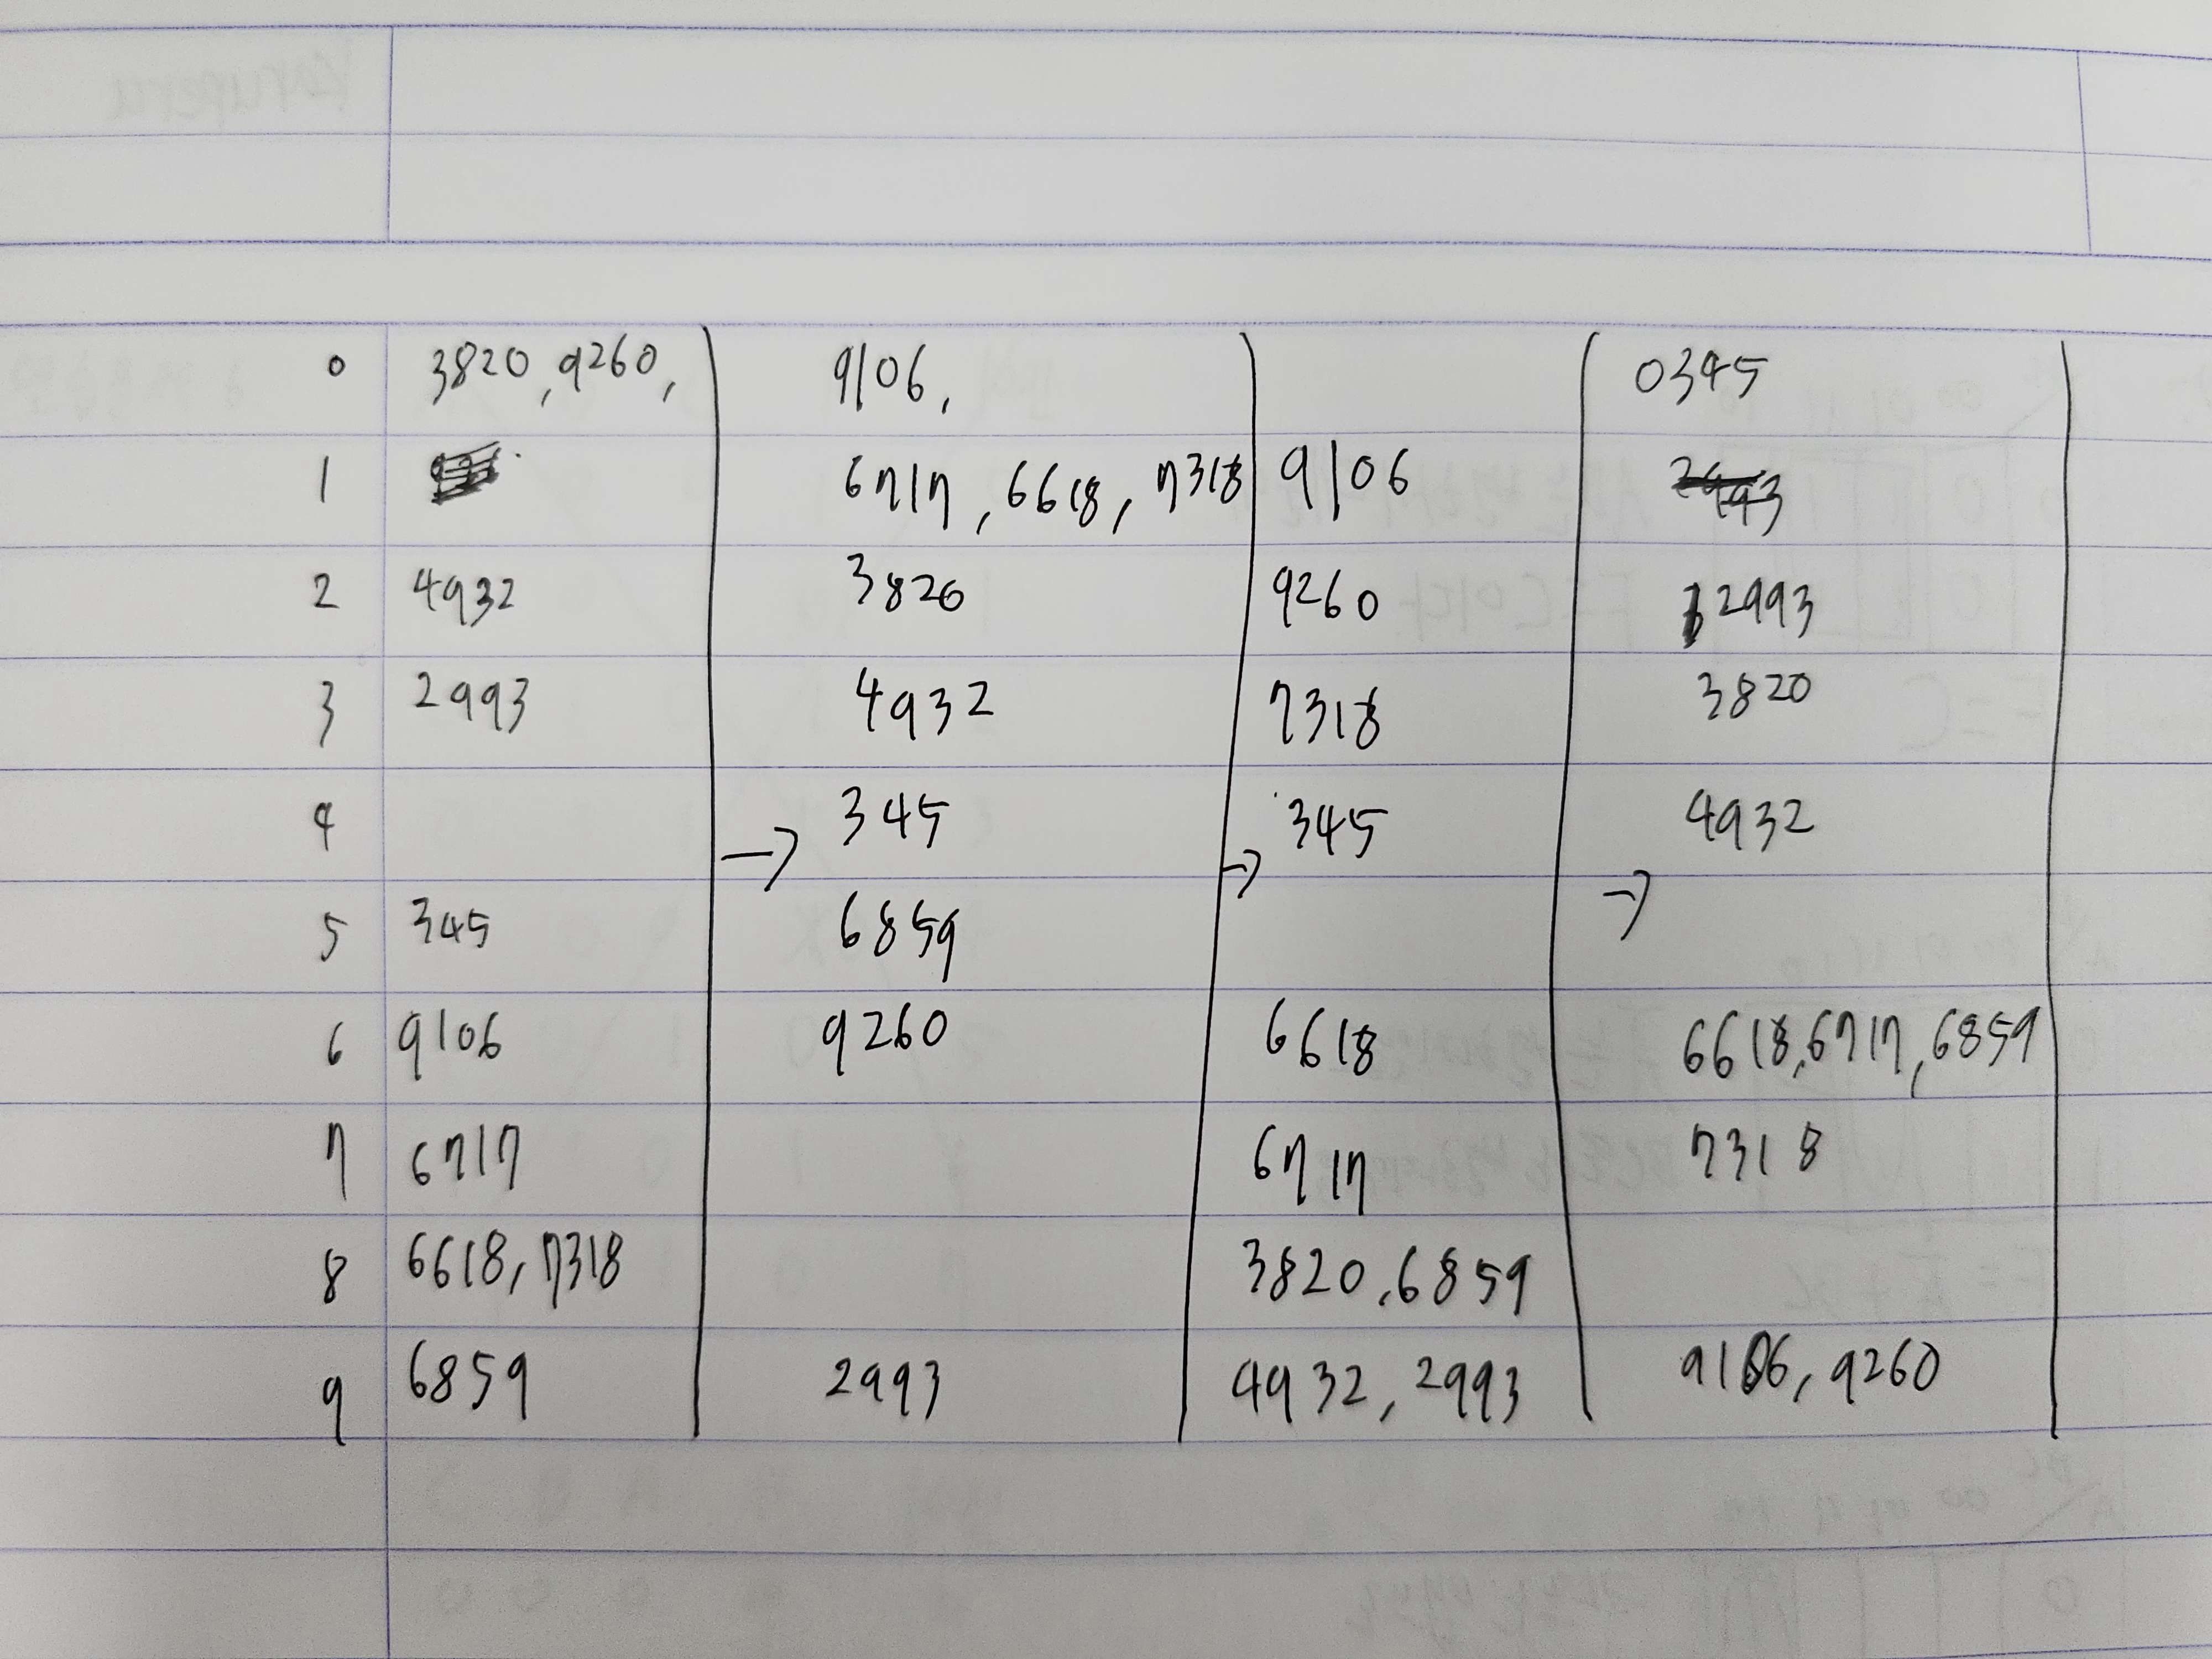 0 3820, 9260, 9106, 0345
1 6717, 6618, 7318 9106 2993
2 4932 3820 9260 2993
3 2993 4932 7318 3820
4 → 345 → 345 4932
5 345 6859 →
6 9106 9260 6618 6618, 6717, 6859
7 6717 6717 7318
8 6618, 7318 3820, 6859
9 6859 2993 4932, 2993 9106, 9260